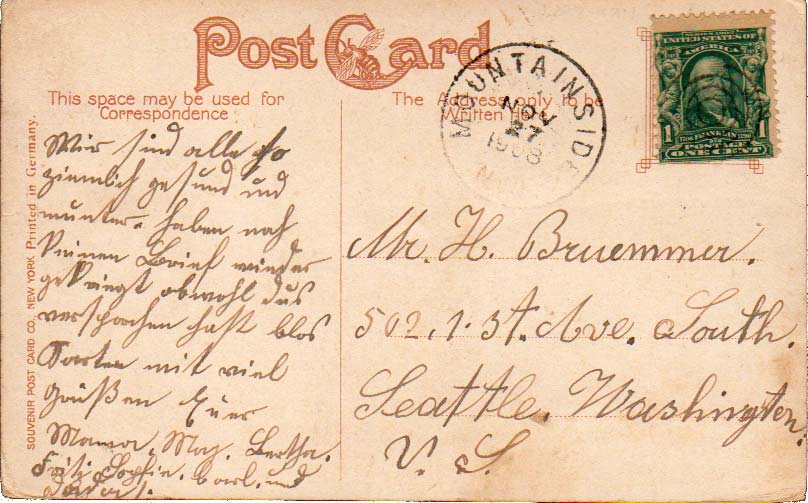 Post Card
This space may be used for
Correspondence
The Address only to be
Written Here
MOUNTAINSIDE
NOV
27
1908
SERIES 1902
UNITED STATES OF
AMERICA
1 1706 FRANKLIN 1790 1
POSTAGE
ONE CENT
SOUVENIR POST CARD CO., NEW YORK Printed in Germany.
Wir sind alle so
ziemlich gesund und
munter. haben noch
keinen Brief wieder
gekriegt obwohl du's
versprochen hast blos
Karten mit viel
Grüßen Euer
Mama, May. Bertha.
Fritz Sophie. Carl. und
Mr. H. Bruemmer.
502, 1. St. Ave. South.
Seattle. Washington.
U. S.